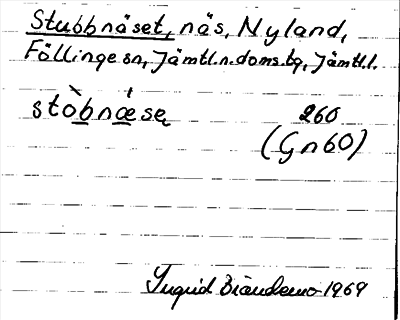 Stubbnäset, näs, Nyland,
Föllinge sn, Jämtl.n.doms.tg, Jämtl.l.
stòbnǽsę 260
(Gn 60)
Ingrid 1969